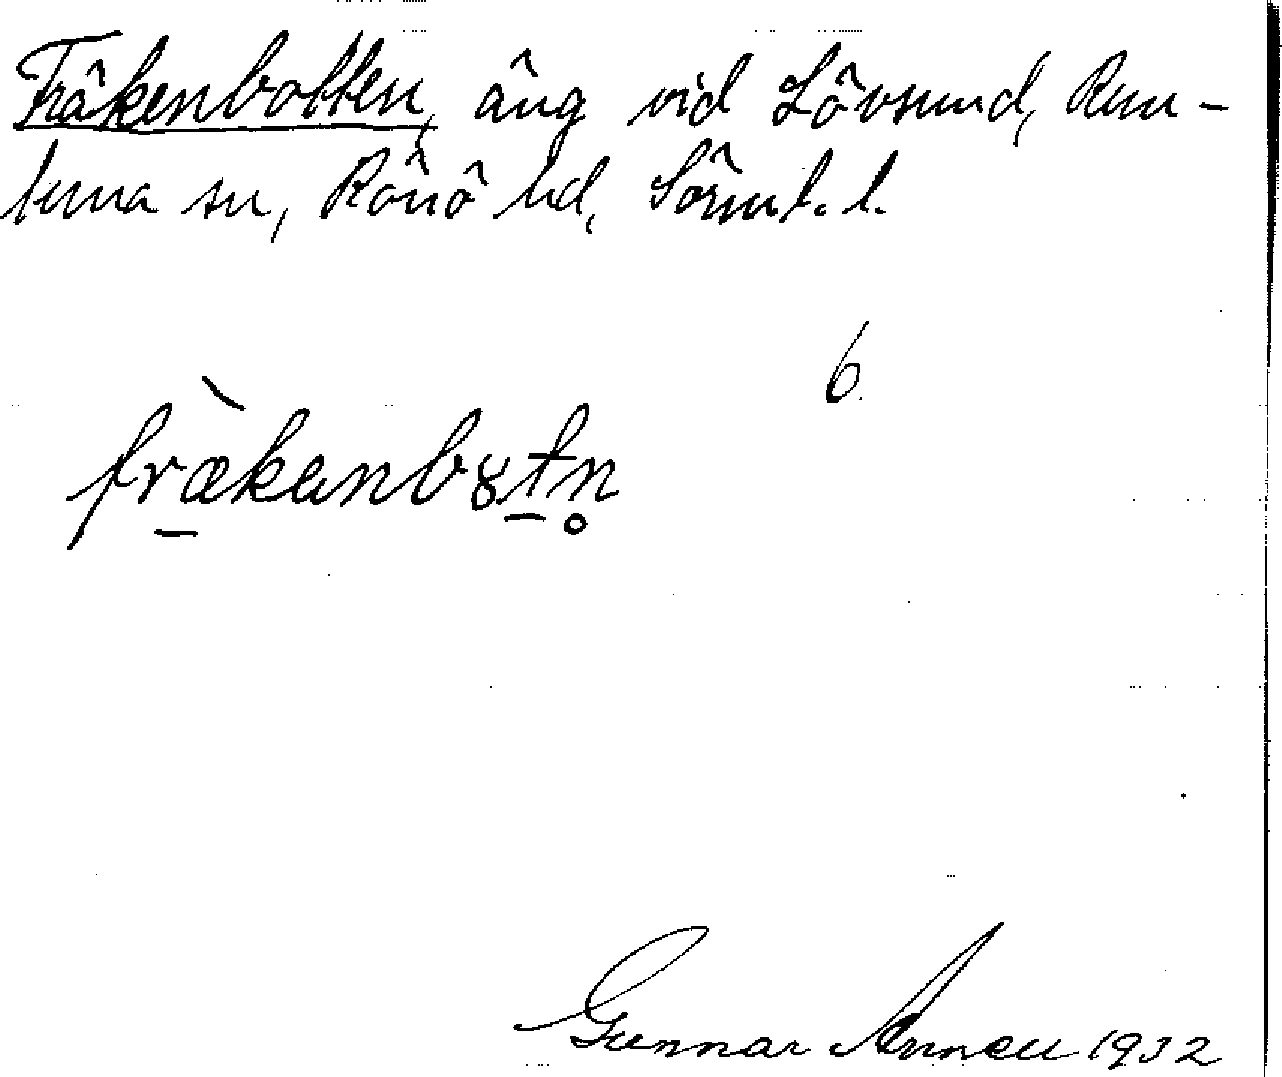 Fräkenbotten, äng vid Lövsund, Run-
tuna sn, Rönö hd, Sörml. l.
6
fræ̀kanbȣtn̥
Gunnar Annell 1932